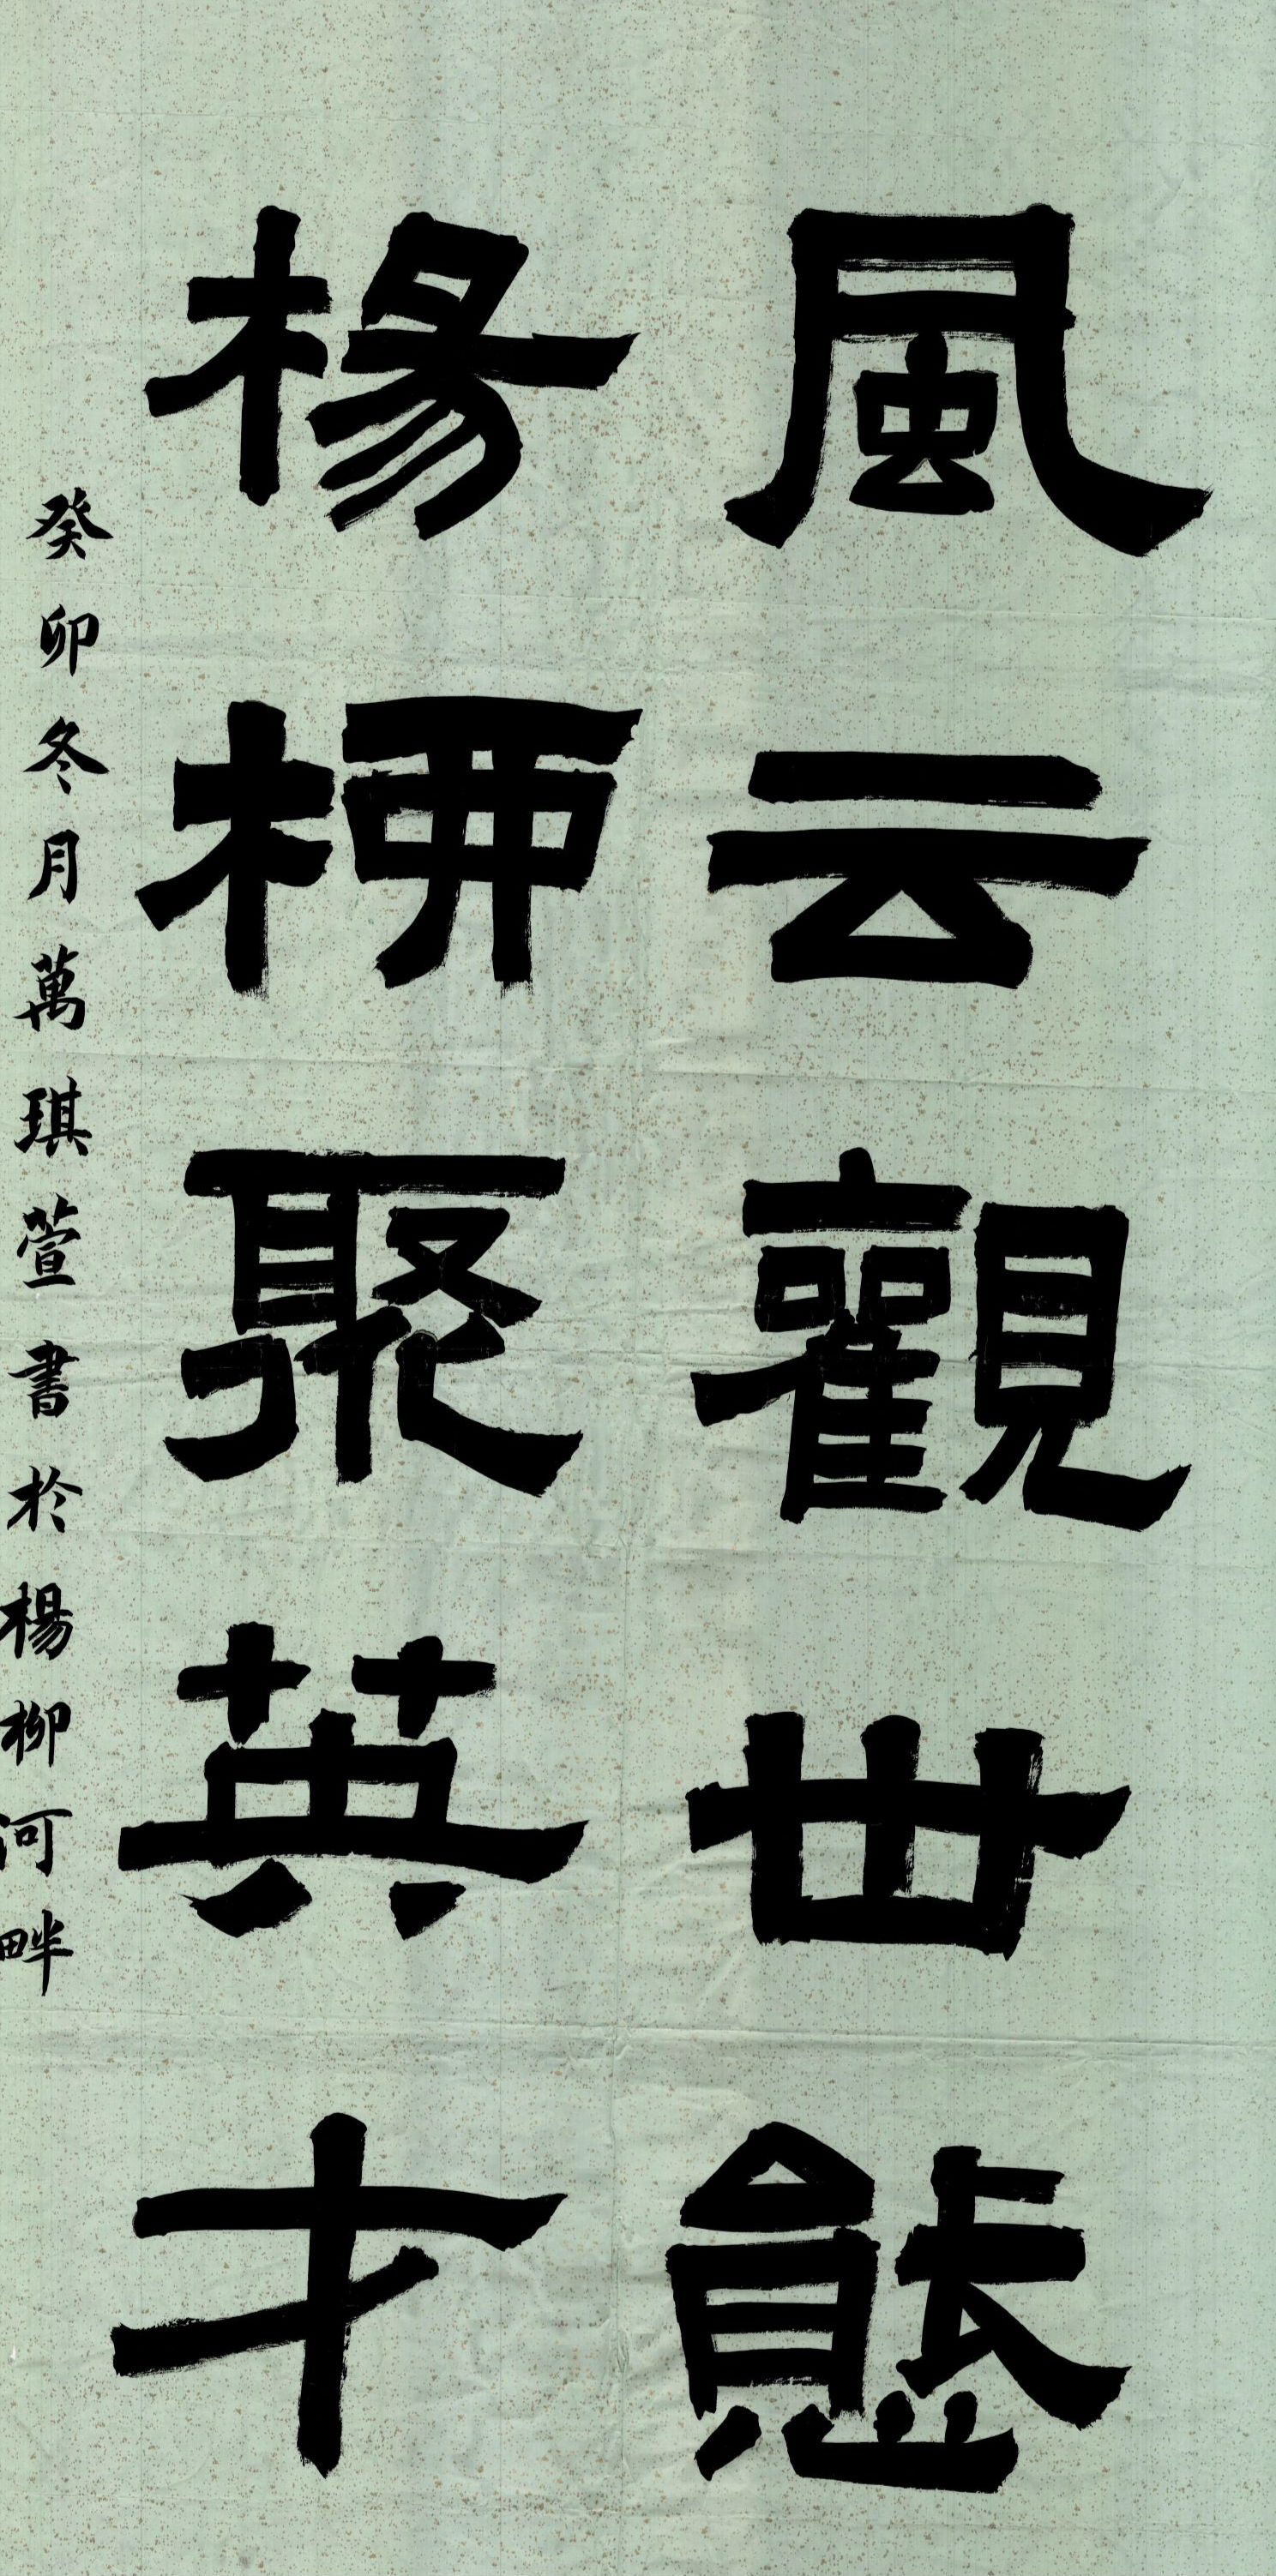 風云觀世態
楊柳聚英才
癸卯冬月萬琪萱書於楊柳河畔